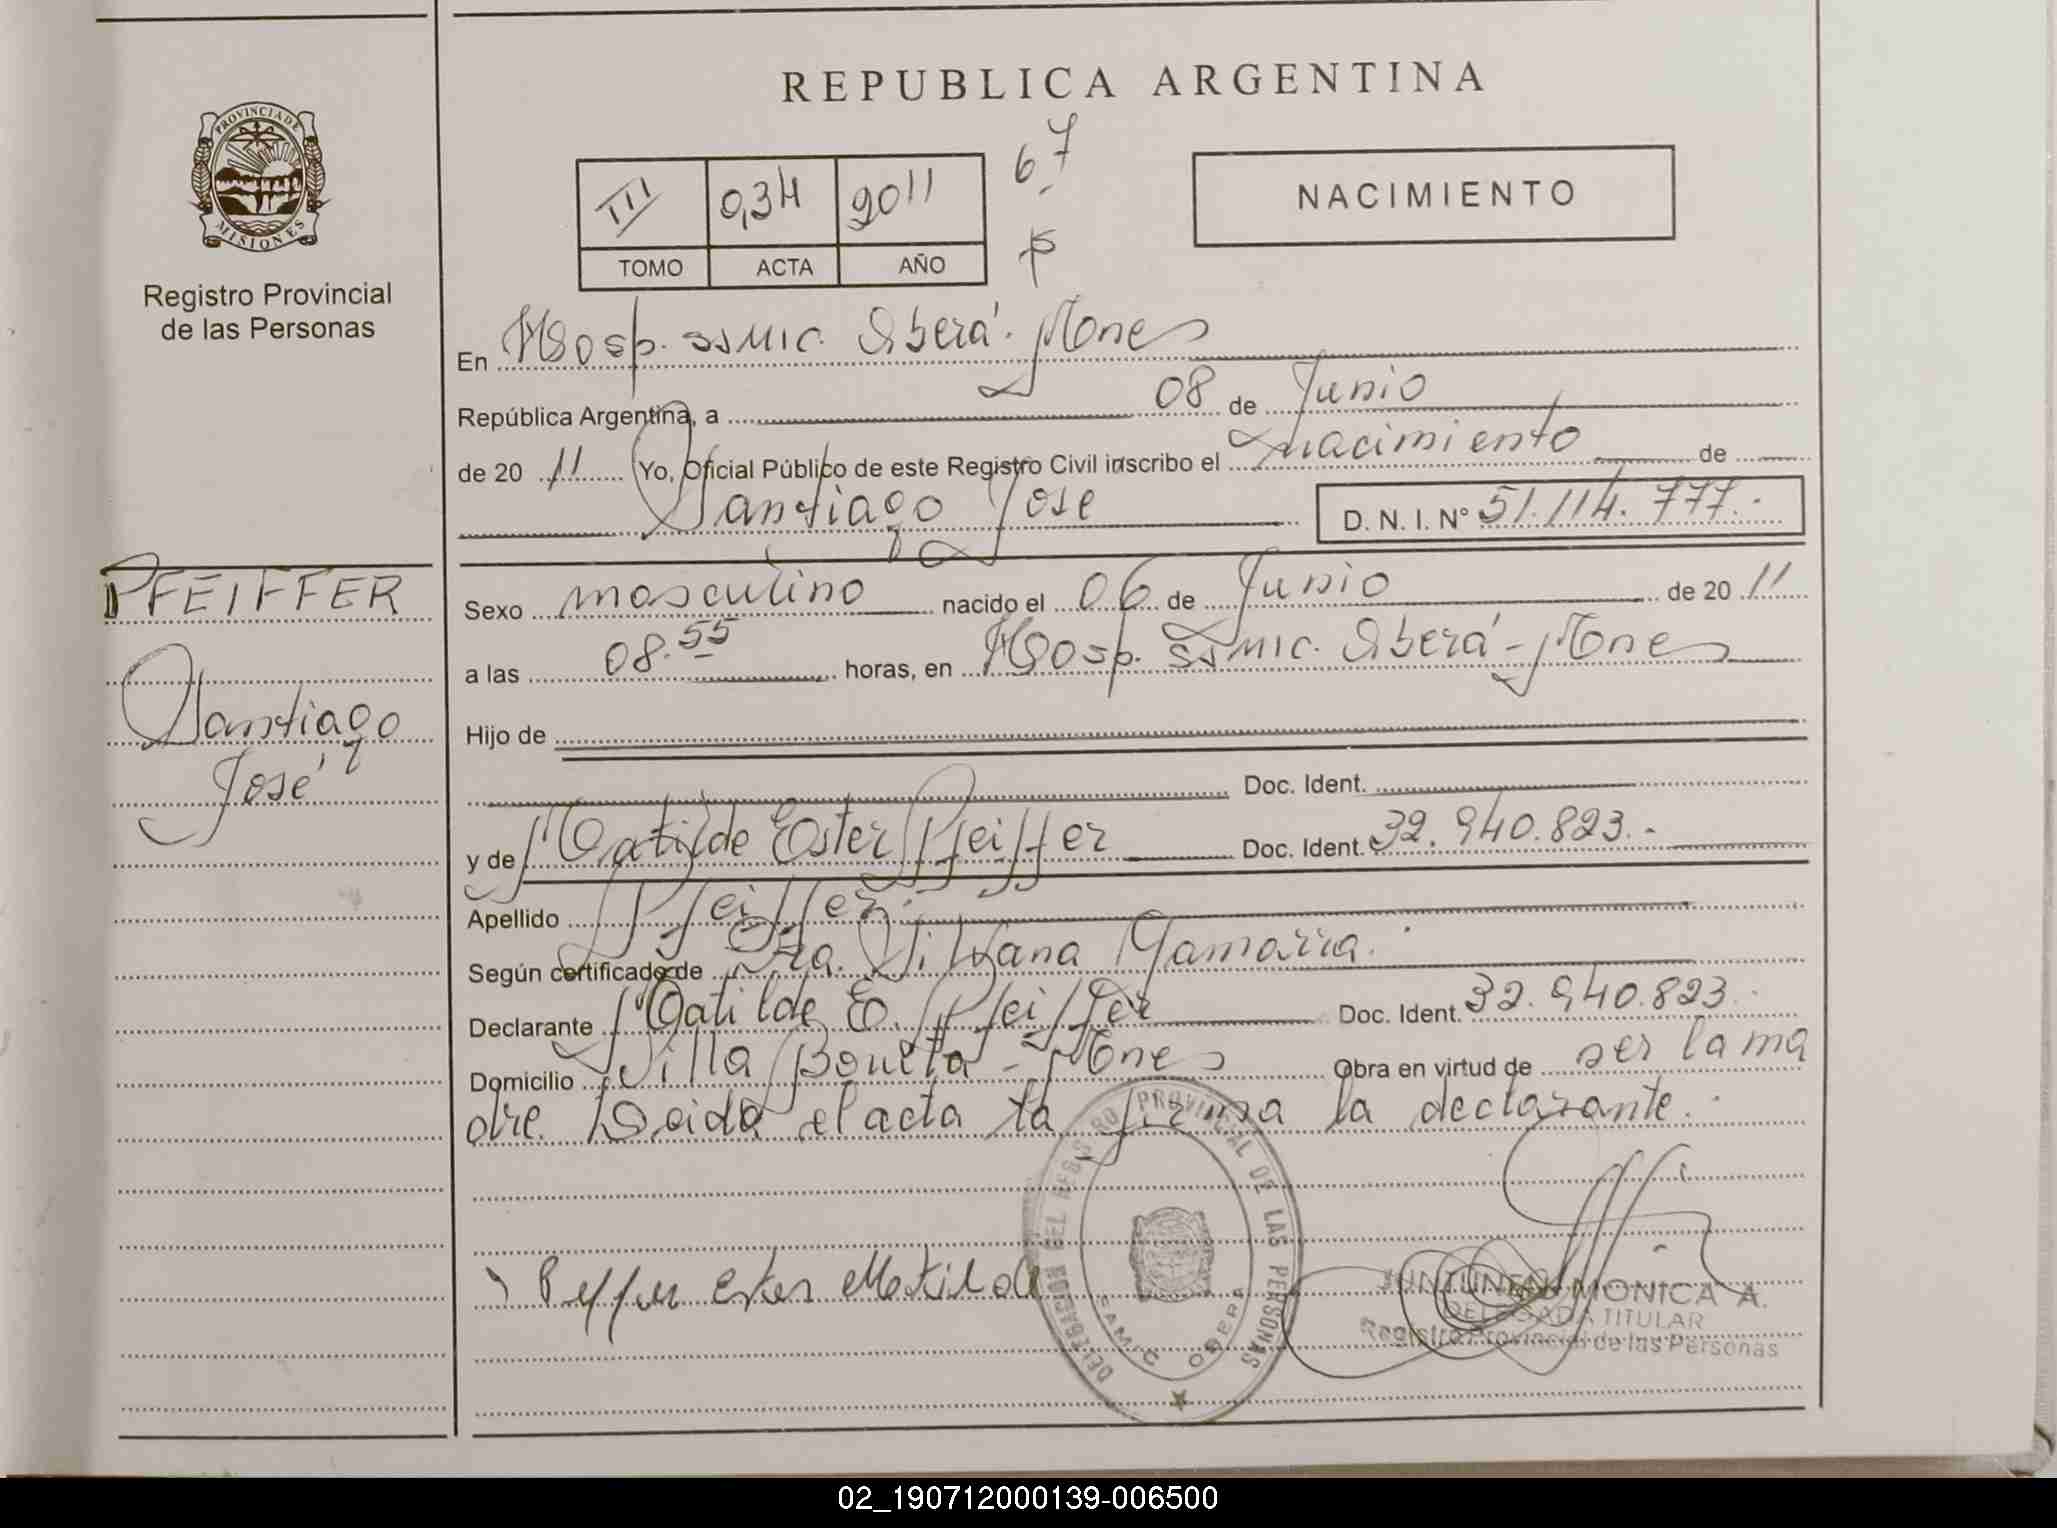 REPUBLICA ARGENTINA
PROVINCIA DE
MISIONES
Registro Provincial
de las Personas
III 0,34 2011
TOMO ACTA AÑO
67
NACIMIENTO
En Hosp. SAMIC. Oberá. Mnes
República Argentina, a 08 de Junio
de 20 11 Yo, Oficial Público de este Registro Civil inscribo el nacimiento de
Santiago Jose D. N. I. N° 51.114.777.-
PFEIFFER
Santiago
José
Sexo masculino nacido el 06 de Junio de 20 11
a las 08.55 horas, en Hosp. SAMIC. Oberá - Mnes
Hijo de
Doc. Ident.
y de Matilde Ester Pfeiffer Doc. Ident. 32.940.823.-
Apellido Pfeiffer.
Según certificado de Dra. Silvana Gamarra.
Declarante Matilde E. Pfeiffer Doc. Ident. 32.940.823.
Domicilio Villa Bonita - Mnes Obra en virtud de ser la ma
dre. Leida el acta la firma la declarante.
DELEGACION DEL REGISTRO PROVINCIAL DE LAS PERSONAS
SAMIC OBERA
Ester Matilde
MONICA A.
DELEGADA TITULAR
Registro Provincial de las Personas
02_190712000139-006500